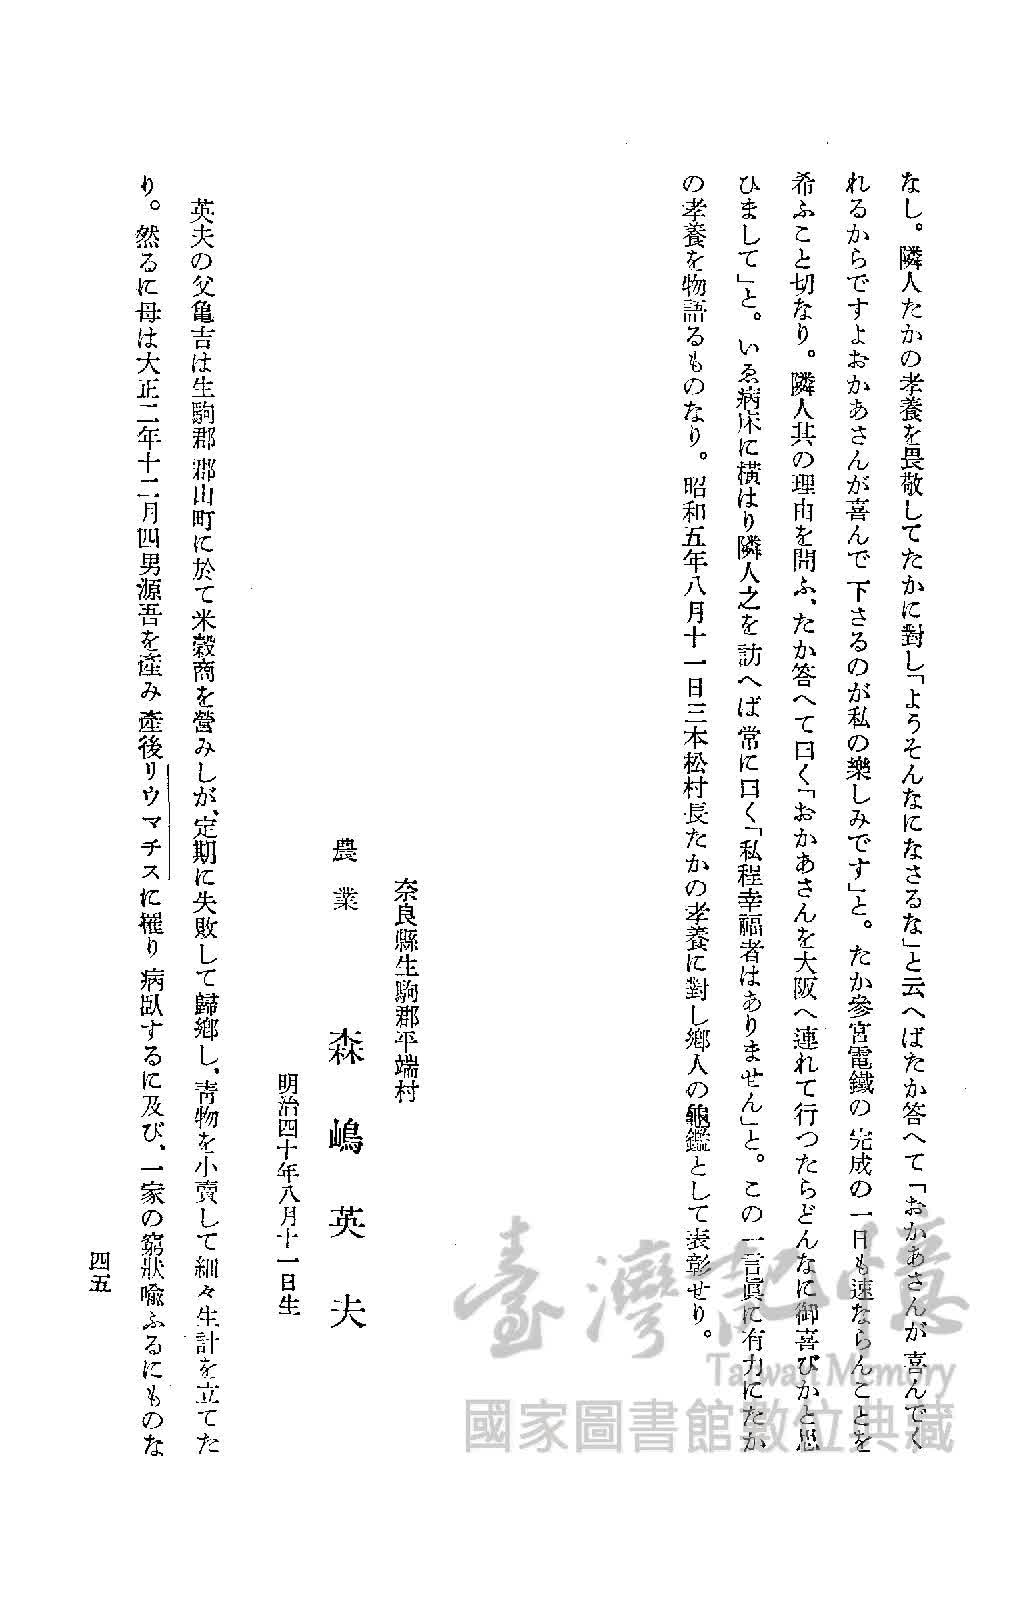 なし。隣人たかの孝養を畏敬してたかに對し「ようそんなになさるな」と云へばたか答へて「おかあさんが喜んでく
れるからですよおかあさんが喜んで下さるのが私の樂しみです」と。たか參宮電鐵の完成の一日も速ならんことを
希ふこと切なり。隣人其の理由を聞ふ、たか答へて曰く「おかあさんを大阪へ連れて行つたらどんなに御喜びかと思
ひまして」と。いゑ病床に横はり隣人之を訪へば常に曰く「私程幸福者はありません」と。この一言眞に有力にたか
の孝養を物語るものなり。昭和五年八月十一日三本松村長たかの孝養に對し鄕人の龜鑑として表彰せり。
奈良縣生駒郡平端村
農業 森嶋英夫
明治四十年八月十一日生
英夫の父亀吉は生駒郡郡山町に於て米穀商を營みしが、定期に失敗して歸鄕し、靑物を小賣して細々生計を立てた
り。然るに母は大正二年十二月四男源吾を產み產後リウマチスに罹り病臥するに及び、一家の窮狀喩ふるにものな
四五
臺灣記憶
Taiwan Memory
國家圖書館數位典藏